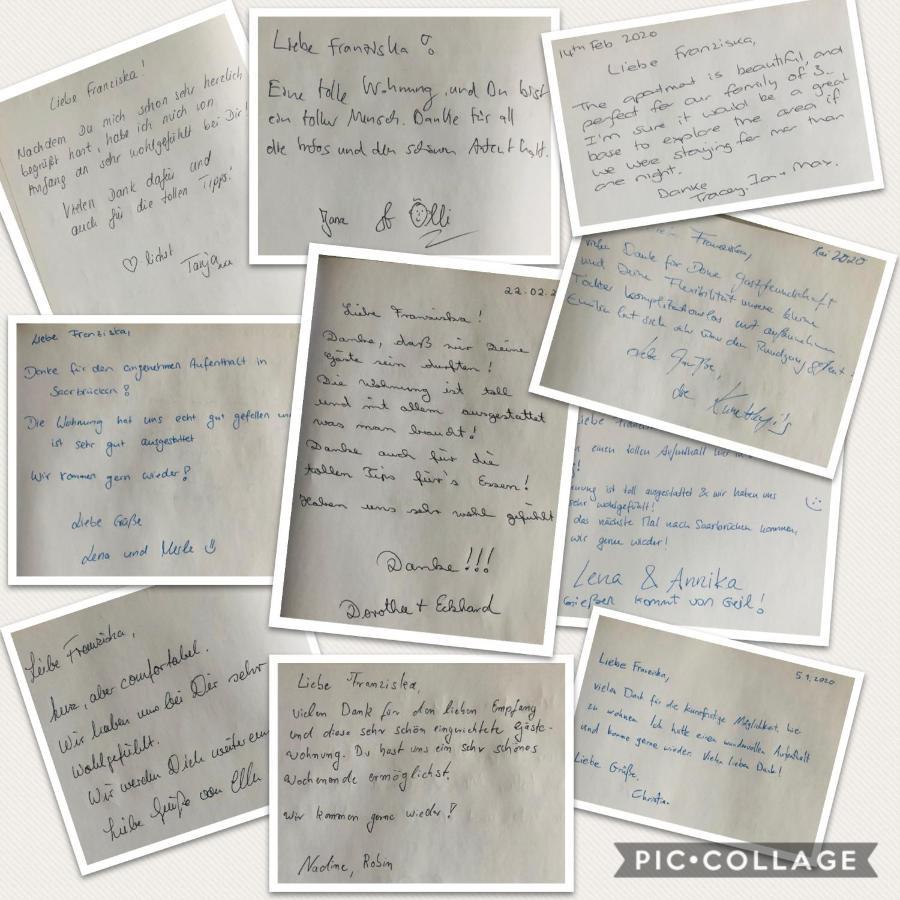 Liebe Franziska!
Nachdem Du mich schon sehr herzlich
begrüßt hast, habe ich mich von
Anfang an sehr wohlgefühlt bei Dir!
Vielen Dank dafür und
auch für die tollen Tipps!
♡ lichst Tanja
Liebe Franziska
Eine tolle Wohnung und Du bist
ein toller Mensch. Danke für all
die Infos und den schönen Aufenthalt.
Jana & Ölli
14th Feb 2020
Liebe Franziska,
The apartment is beautiful, and
perfect for our family of 3..
I'm sure it would be a great
base to explore the area if
we were staying for mor than
one night.
Danke
Tracey, Ian + Max.
Franziska,
Mai 2020
viele Dank für Deine Gastfreundschaft
und Deine Flexibilität unsere kleine
Tochter komplikationslos mit aufzunehmen
Emilia hat sich sehr über den
Liebe Grüße,
die
Liebe Franziska,
Danke für den angenehmen Aufenthalt in
Saarbrücken!
Die Wohnung hat uns echt gut gefallen un
ist sehr gut ausgestattet
Wir kommen gern wieder!
Liebe Grüße
Lena und Merle
22.02.2
Liebe Franziska!
Danke, daß wir Deine
Gäste sein durften!
Die Wohnung ist toll
und mit allem ausgestattet
was man braucht!
Danke auch für die
tollen Tips für's Essen!
Haben uns sehr wohl gefühlt
Danke!!!
Dorothee + Eckhard
Liebe
n einen tollen Aufenthalt
nung ist toll ausgestattet & wir haben uns
sehr wohlgefühlt!
das nächste Mal nach Saarbrücken kommen,
wir gerne wieder!
Lena & Annika
Gießen kommt von Geil!
Liebe Franziska,
kurz, aber comfortabel.
Wir haben uns bei Dir sehr
wohlgefühlt.
Wir werden Dich weiterem
Liebe Grüße von Ellen
Liebe Franziska,
vielen Dank für den lieben Empfang
und diese sehr schön eingerichtete Gäste-
wohnung. Du hast uns ein sehr schönes
Wochenende ermöglichst.
Wir kommen gerne wieder!
Nadine, Robin
5.1.2020
Liebe Franziska,
vielen Dank für die kurzfristige Möglichkeit hier
zu wohnen. Ich hatte einen wundervollen Aufenthalt
und komme gerne wieder. Vielen lieben Dank!
Liebe Grüße,
Christina
PIC•COLLAGE